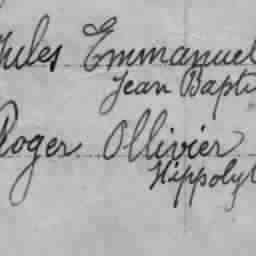 Jules Emmanuel
Jean Bapti
Roger Ollivier
Hippolyt